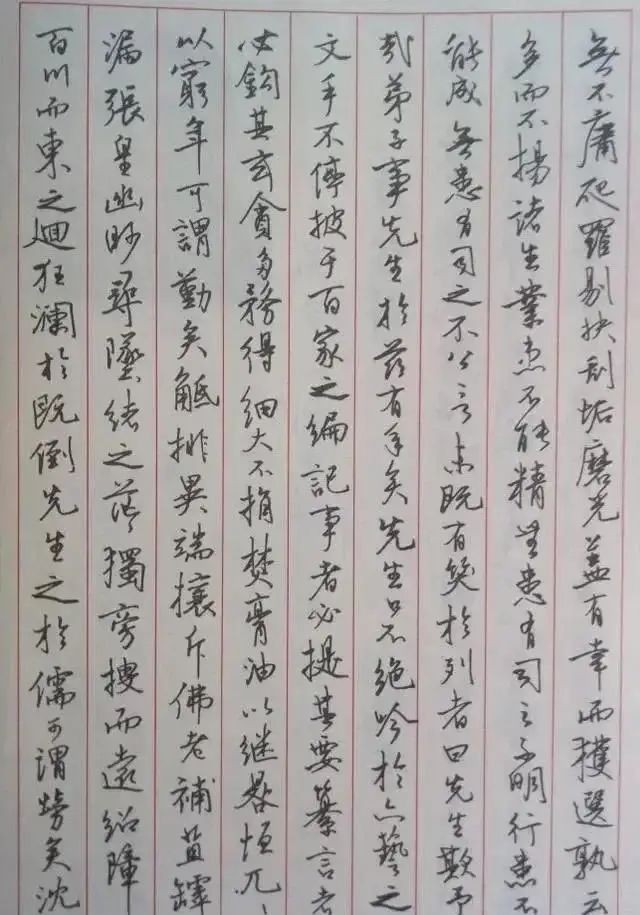 無不庸爬羅剔抉刮垢磨光蓋有幸而獲選孰云
多而不揚諸生業患不能精無患有司之不明行患不
能成無患有司之不公言未既有笑於列者曰先生欺予
哉弟子事先生於茲有年矣先生口不絕吟於六藝之
文手不停披于百家之編記事者必提其要纂言者
必鈎其玄貪多務得細大不捐焚膏油以继晷恒兀〻
以窮年可謂勤矣觝排異端攘斥佛老補苴罅
漏張皇幽眇尋墜緒之茫〻獨旁搜而遠紹障
百川而東之迴狂瀾於既倒先生之於儒可謂勞矣沈